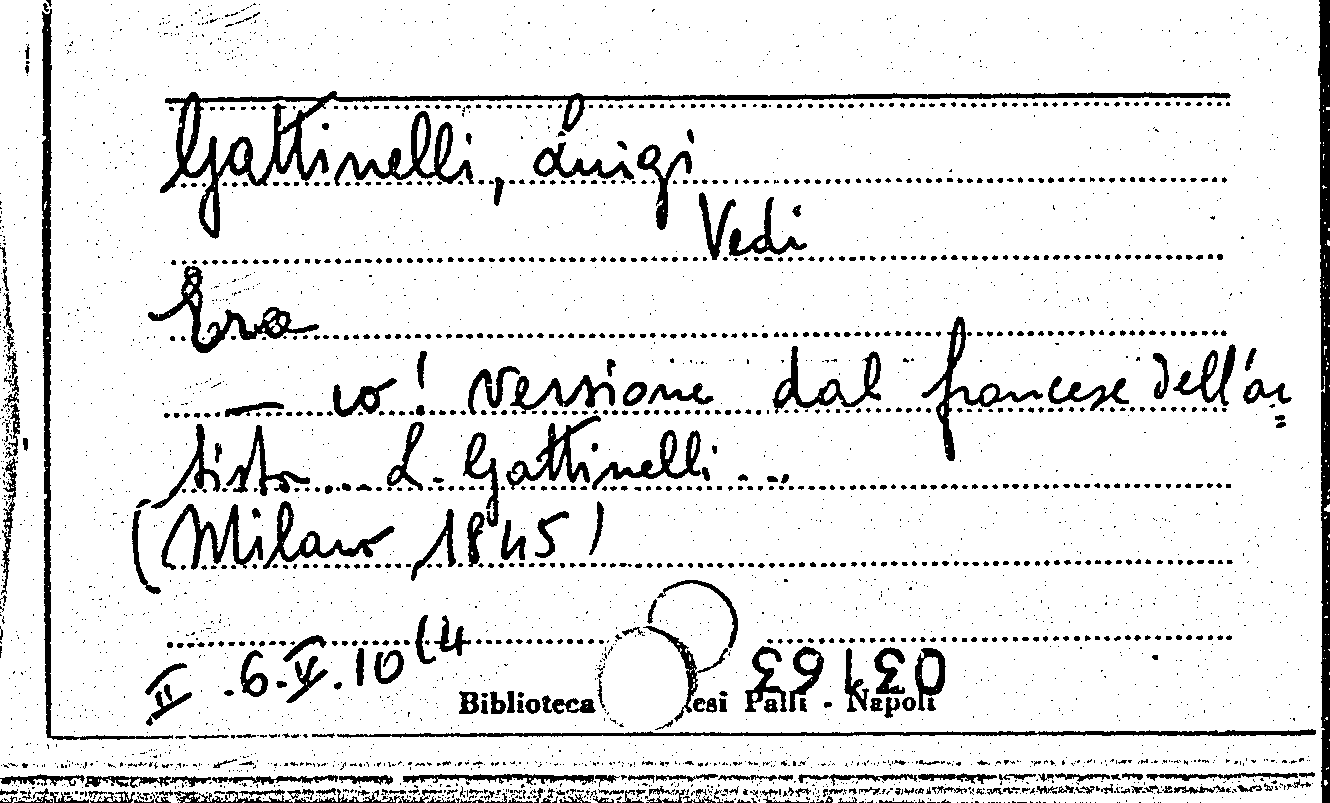 Gattinelli, Luigi
Vedi
Era
— io! versione dal francese dell'ar=
tista... L. Gattinelli...
(Milano, 1845)
II .6.V.10(4
03163
Biblioteca esi Palli - Napoli